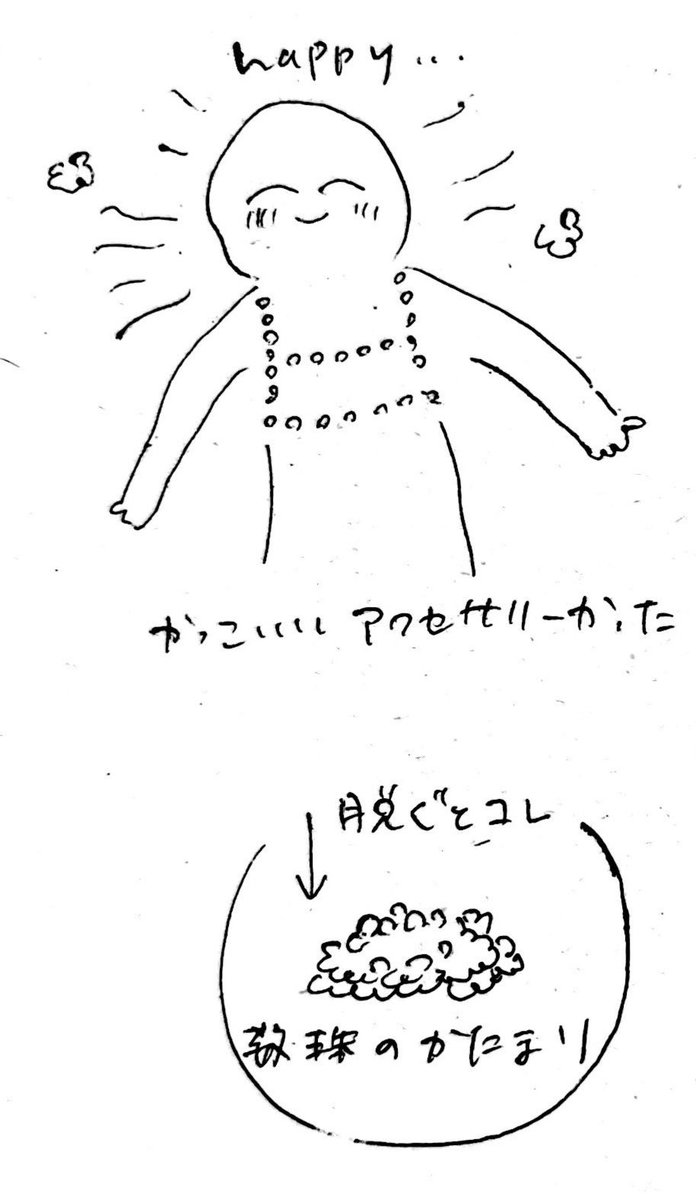 happy...
かっこいいい アクセサリーかった
脱ぐとコレ
数珠のかたまり